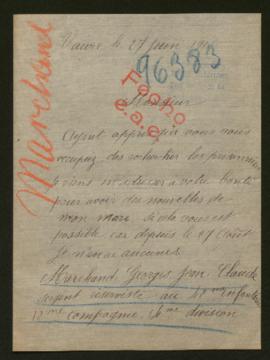 le 27 Juin
96383
Marchand
Monsieur
Ayant appris que vous vous
occupez des
je viens m'adresser à votre bonté
pour avoir des nouvelles de
mon mari si cela vous est
possible car depuis le 27 Août
je n'en ai aucunes
Marchand Georges Jean Claude
sergent réserviste au d'Infanterie
compagnie, division